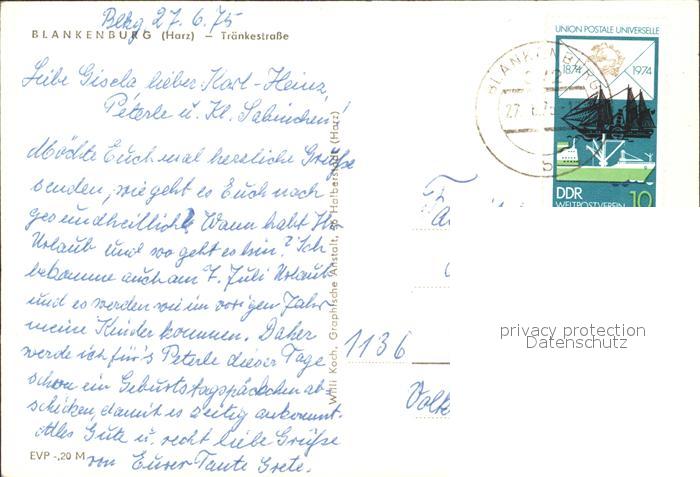 Blkg 27.6.75
BLANKENBURG (Harz) — Tränkestraße
Liebe Gisela lieber Karl-Heinz,
Peterle u. Kl. Sabinchen!
Möchte Euch mal herzliche Grüße
senden, wie geht es Euch noch
gesundheitlich? Wann habt Ihr
Urlaub und wo geht es hin? Ich
bekomme auch am 7. Juli Urlaub
und es werden wie im vorigen Jahr
meine Kinder kommen. Daher
werde ich für's Peterle dieser Tage
schon ein Geburtstagspäckchen ab-
schicken, damit es zeitig ankommt.
Alles Gute u. recht liebe Grüße
von Eurer Tante Grete.
EVP -,20 M
Willi Koch, Graphische Anstalt, 36 Halberstadt (Harz)
UNION POSTALE UNIVERSELLE
1874 1974
DDR 10
WELTPOSTVEREIN
BLANKENBURG
27. 6. 75
Fa
1136
Volk
privacy protection
Datenschutz